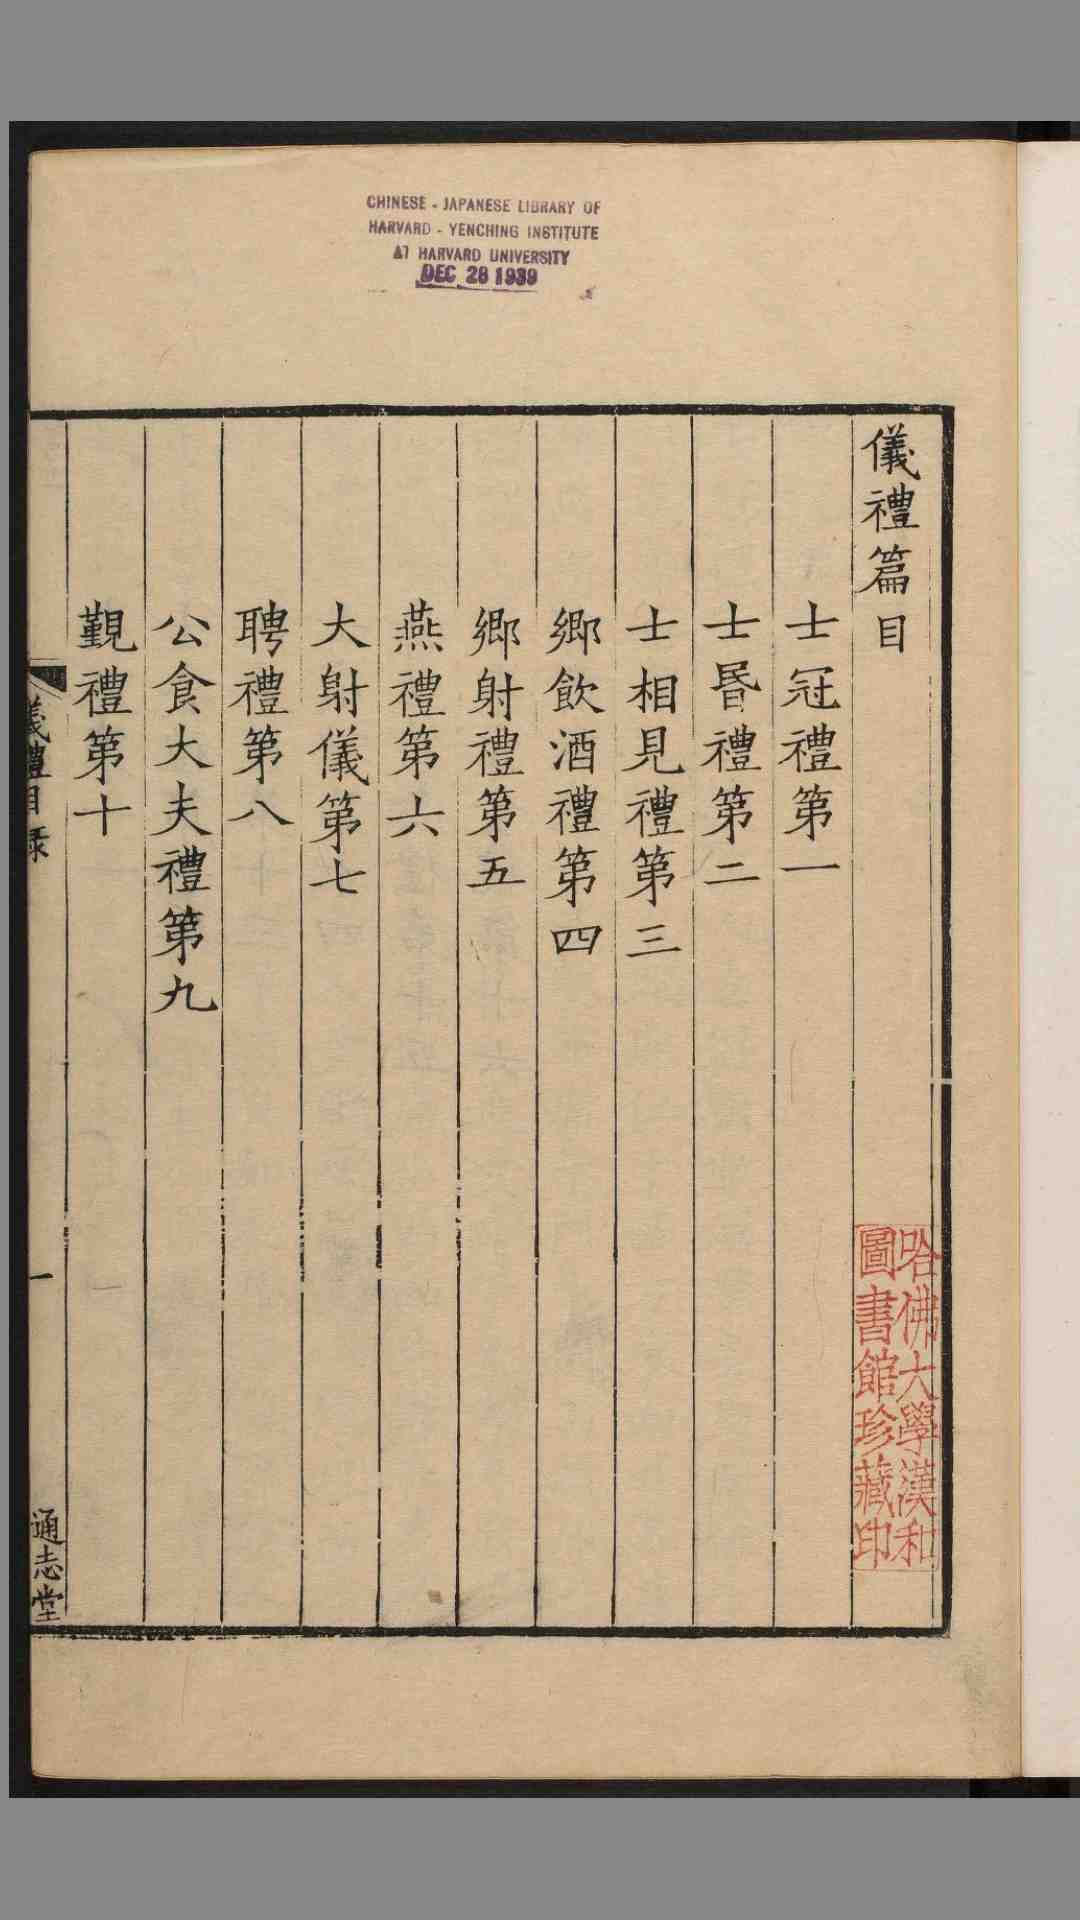 CHINESE - JAPANESE LIBRARY OF
HARVARD - YENCHING INSTITUTE
AT HARVARD UNIVERSITY
DEC 28 1939
儀禮篇目
士冠禮第一
士昬禮第二
士相見禮第三
鄉飲酒禮第四
鄉射禮第五
燕禮第六
大射儀第七
聘禮第八
公食大夫禮第九
覲禮第十
儀禮目錄
一
通志堂
哈佛大學漢和
圖書館珍藏印